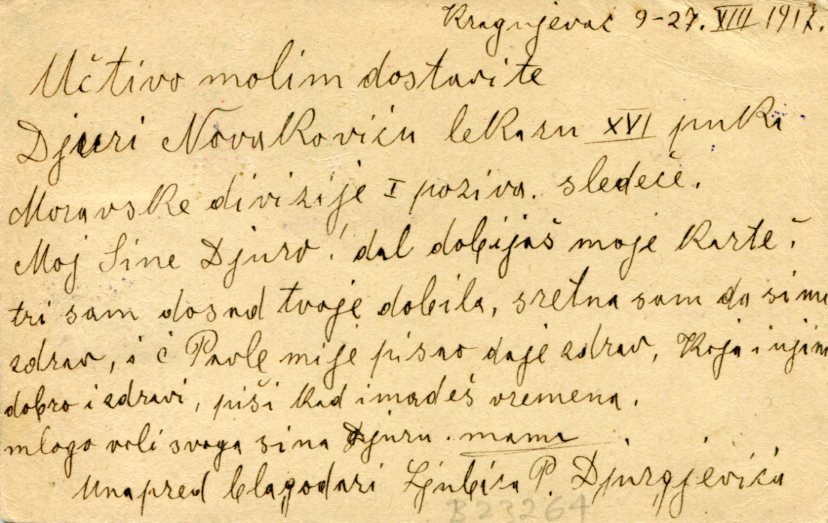 Kragujevac 9-27. VIII 1917.
Učtivo molim dostavite
Djuri Novakoviću lekaru XVI puka
Moravske divizije I poziva. sledeće.
Moj Sine Djuro! dal dobijaš moje karte?
tri sam dosad tvoje dobila, sretna sam da si mi
zdrav, i č Pavle mi je pisao da je zdrav, Koja i njini
dobro i zdravi, piši kad imadeš vremena.
mlogo voli svoga sina Djuru. mama
Unapred blagodari Ljubica P. Djurdjevića
B23264